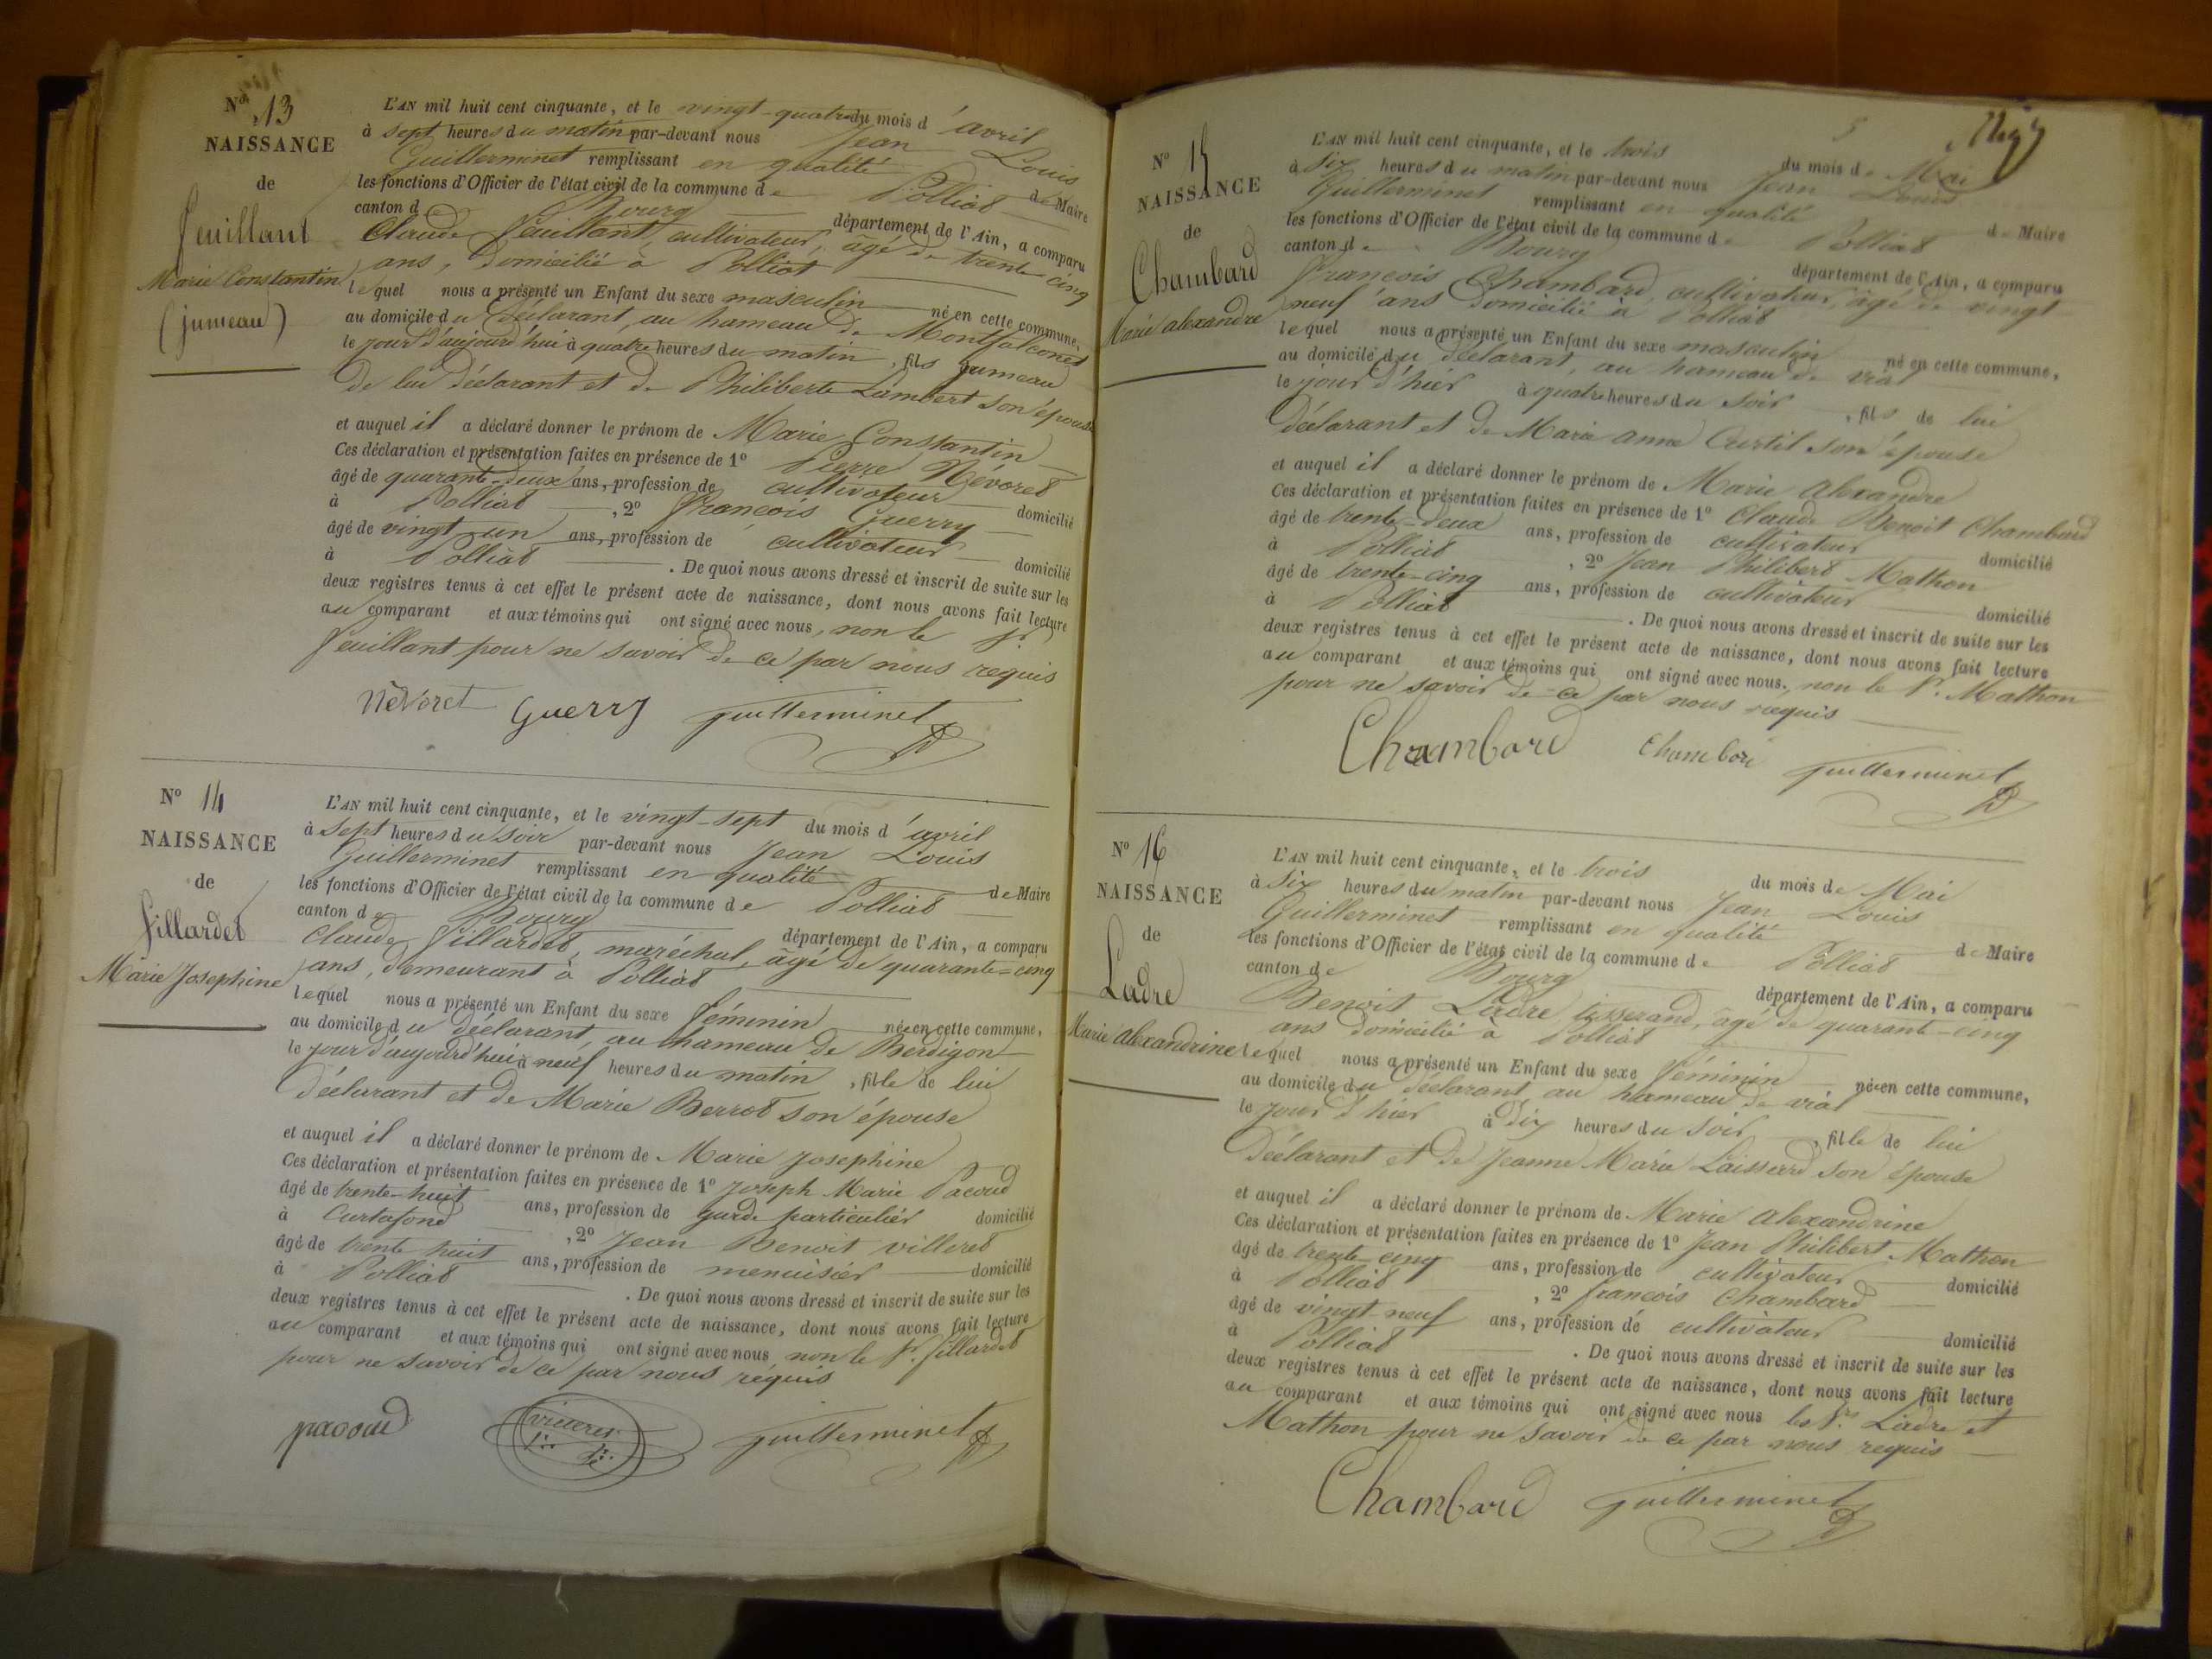 N° 13
NAISSANCE
de
Feuillant
Marie Constantin
(jumeau)
L'AN mil huit cent cinquante, et le vingt-quatre du mois d'avril
à sept heures du matin par-devant nous Jean Louis
Guillerminet remplissant en qualité de Maire
les fonctions d'Officier de l'état civil de la commune de Polliat
canton de Bourg département de l'Ain, a comparu
Claude Feuillant, cultivateur, âgé de trente-cinq
ans, domicilié à Polliat
lequel nous a présenté un Enfant du sexe masculin né en cette commune,
au domicile du déclarant, au hameau de Montfalconet
le jour d'aujourd'hui à quatre heures du matin, fils jumeau
de lui déclarant et de Philiberte Lambert son épouse
et auquel il a déclaré donner le prénom de Marie Constantin
Ces déclaration et présentation faites en présence de 1° Pierre Névoret
âgé de quarante-deux ans, profession de cultivateur domicilié
à Polliat, 2° François Guerry
âgé de vingt-un ans, profession de cultivateur domicilié
à Polliat. De quoi nous avons dressé et inscrit de suite sur les
deux registres tenus à cet effet le présent acte de naissance, dont nous avons fait lecture
au comparant et aux témoins qui ont signé avec nous, non le Sr.
Feuillant pour ne savoir de ce par nous requis
Névoret Guerry Guillerminet
N° 14
NAISSANCE
de
Fillardet
Marie Josephine
L'AN mil huit cent cinquante, et le vingt-sept du mois d'avril
à sept heures du soir par-devant nous Jean Louis
Guillerminet remplissant en qualité de Maire
les fonctions d'Officier de l'état civil de la commune de Polliat
canton de Bourg département de l'Ain, a comparu
Claude Fillardet, maréchal, âgé de quarante-cinq
ans, demeurant à Polliat
lequel nous a présenté un Enfant du sexe féminin née en cette commune,
au domicile du déclarant, au hameau de Berdigon
le jour d'aujourd'hui à neuf heures du matin, fille de lui
déclarant et de Marie Berrod son épouse
et auquel il a déclaré donner le prénom de Marie Josephine
Ces déclaration et présentation faites en présence de 1° Joseph Marie Pacoud
âgé de trente-huit ans, profession de garde particulier domicilié
à Curtafond, 2° Jean Benoit Villeret
âgé de trente huit ans, profession de menuisier domicilié
à Polliat. De quoi nous avons dressé et inscrit de suite sur les
deux registres tenus à cet effet le présent acte de naissance, dont nous avons fait lecture
au comparant et aux témoins qui ont signé avec nous non le Sr. Fillardet
pour ne savoir de ce par nous requis
pacoud Guillerminet
5
N° 15
NAISSANCE
de
Chambard
Marie alexandre
L'AN mil huit cent cinquante, et le trois du mois de Mai
à six heures du matin par-devant nous Jean Louis
Guillerminet remplissant en qualité de Maire
les fonctions d'Officier de l'état civil de la commune de Polliat
canton de Bourg département de l'Ain, a comparu
François Chambard, cultivateur, âgé de vingt
neuf ans domicilié à Polliat
lequel nous a présenté un Enfant du sexe masculin né en cette commune,
au domicile du déclarant, au hameau de vial
le jour d'hier à quatre heures du soir, fils de lui
déclarant et de Marie anne Curtil son épouse
et auquel il a déclaré donner le prénom de Marie alexandre
Ces déclaration et présentation faites en présence de 1° Claude Benoit Chambard
âgé de trente-deux ans, profession de cultivateur domicilié
à Polliat, 2° Jean Philibert Mathon
âgé de trente-cinq ans, profession de cultivateur domicilié
à Polliat. De quoi nous avons dressé et inscrit de suite sur les
deux registres tenus à cet effet le présent acte de naissance, dont nous avons fait lecture
au comparant et aux témoins qui ont signé avec nous. non le Sr. Mathon
pour ne savoir de ce par nous requis
Chambard Chambard Guillerminet
N° 16
NAISSANCE
de
Ladre
Marie alexandrine
L'AN mil huit cent cinquante, et le trois du mois de Mai
à six heures du matin par-devant nous Jean Louis
Guillerminet remplissant en qualité de Maire
les fonctions d'Officier de l'état civil de la commune de Polliat
canton de Bourg département de l'Ain, a comparu
Benoit Ladre, tisserand, âgé de quarante-cinq
ans domicilié à Polliat
lequel nous a présenté un Enfant du sexe féminin née en cette commune,
au domicile du déclarant, au hameau de vial
le jour d'hier à dix heures du soir, fille de lui
déclarant et de Jeanne Marie Laisserd son épouse
et auquel il a déclaré donner le prénom de Marie alexandrine
Ces déclaration et présentation faites en présence de 1° Jean Philibert Mathon
âgé de trente-cinq ans, profession de cultivateur domicilié
à Polliat, 2° François Chambard
âgé de vingt-neuf ans, profession de cultivateur domicilié
à Polliat. De quoi nous avons dressé et inscrit de suite sur les
deux registres tenus à cet effet le présent acte de naissance, dont nous avons fait lecture
au comparant et aux témoins qui ont signé avec nous les Srs. Ladre et
Mathon pour ne savoir de ce par nous requis
Chambard Guillerminet